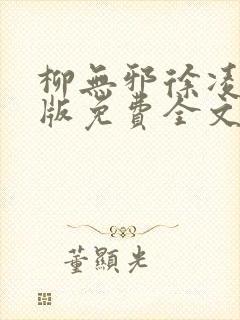 柳無邪徐凌
版免費全文
董顯光